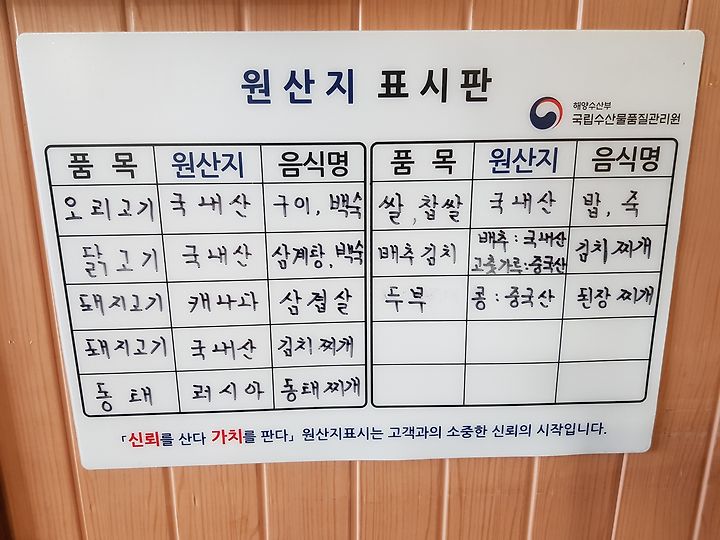 원산지 표시판
해양수산부
국립수산물품질관리원
품목 원산지 음식명
오리고기 국내산 구이, 백숙
닭고기 국내산 삼계탕, 백숙
돼지고기 캐나다 삼겹살
돼지고기 국내산 김치찌개
동태 러시아 동태찌개
품목 원산지 음식명
쌀, 찹쌀 국내산 밥, 죽
배추김치 배추:국내산 고춧가루:중국산 김치찌개
두부 콩:중국산 된장찌개
「신뢰를 산다 가치를 판다」 원산지표시는 고객과의 소중한 신뢰의 시작입니다.